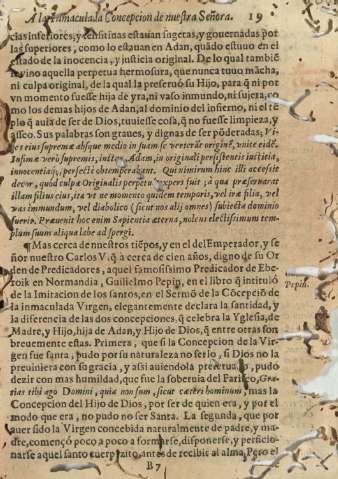 A la Inmaculada Concepcion de nuestra Señora. 19
cias inferiores, y sensitinas estauan sugetas, y gouernadas por
las superiores, como lo estauan en Adan, quãdo estuuo en el
estado de la inocencia, y justicia original. De lo qual tambiẽ
le vino aquella perpetua hermosura, que nunca tuuo mácha,
ni culpa original, de la qual la preseruó su Hijo, para q̃ ni por
vn momento fuesse hija de yra, ni vaso inmundo, ni sujeta, co
mo los demas hijos de Adan, al dominio del infierno, ni el tẽ
plo q̃ auia de ser de Dios, tuuiesse cosa, q̃ no fuesse limpieza, y
asseo. Sus palabras son graues, y dignas de ser põderadas;
res eius supremæ absque medio in suam se verterãt originẽ, vnitæ eidẽ.
Infimæ verò supremis, Adam, in originali persistentis iustitia,
innocentiaq; perfectè obtemperabant. Qui nimirum hinc illi accessit
decor, quòd culpæ Originalis perpetuò expers fuit; à qua præseruarat
illam filius eius, ita vt ne momento quidem temporis, vel iræ filia, vel
vas immundum, vel diabolico (sicut nos alij omnes) subiecta dominio
fuerit. Præuenit hoc enim Sapientia æterna, nolens electissimum tem
plum suum aliqua labe ad spergi.
¶ Mas cerca de nuestros tiẽpos, y en el del Emperador, y se
ñor nuestro Carlos V. q̃ a cerca de cien años, digno de su Or
den de Predicadores, aquel famosissimo Predicador de Ebe-
roik en Normandia, Guilielmo Pepin, en el libro q̃ intituló
Pepin.
de la Imitacion de los santos, en el Sermõ de la Cõcepciõ de
la inmaculada Virgen, elegantemente declara la santidad, y
la diferencia de las dos concepciones, q̃ celebra la Yglesia, de
Madre, y Hijo, hija de Adan, y Hijo de Dios, q̃ entre otras son
breuemente estas. Primera, que si la Concepcion de la Vir-
gen fue santa, pudo por su naturaleza no serlo, si Dios no la
preuiniera con su gracia, y assi auiendola preueruado, pudo
dezir con mas humildad, que fue la soberuia del Pariseo, Gra
tias tibi ago Domini, quia non sum, sicut cæteri hominum, mas la
Concepcion del Hijo de Dios, por ser de quien era, y por el
modo que era, no pudo no ser Santa. La segunda, que por
auer sido la Virgen concebida naturalmente de padre, y ma-
dre, començó poco a poco a formarse, disponerse, y perficio-
narse aquel santo cuerpezito, antes de recibir al alma. Pero el
B 7